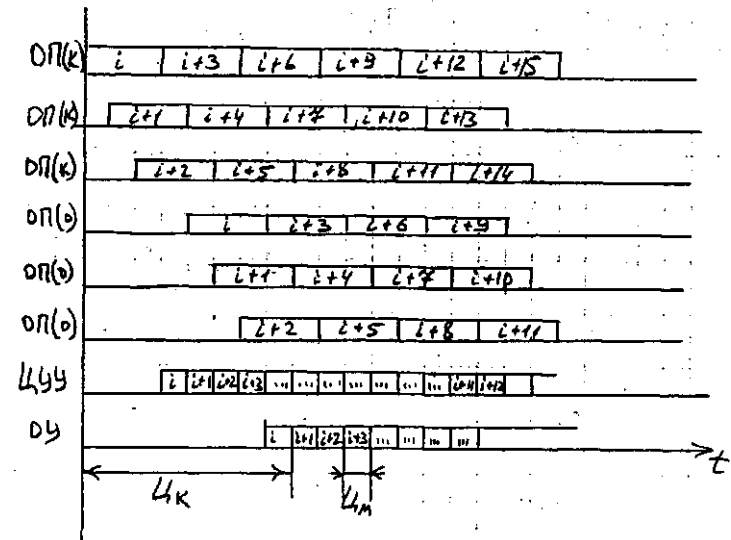 ОП(К) i i+3 i+6 i+9 i+12 i+15
ОП(К) i+1 i+4 i+7 i+10 i+13
ОП(К) i+2 i+5 i+8 i+11 i+14
ОП(О) i i+3 i+6 i+9
ОП(О) i+1 i+4 i+7 i+10
ОП(О) i+2 i+5 i+8 i+11
ЦУУ i i+1 i+2 i+3 ... ... ... ... ... ... ... i+11 i+12
ОУ i i+1 i+2 i+3 ... ... ... ...
t
Цк Цм